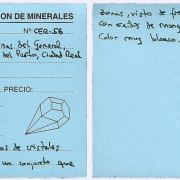 ION DE MINERALES
Nº: CER-56
nas del General,
del Puerto, Ciudad Real
PRECIO:
os de cristales
un conjunto que
zonas, visto de fre
con óxidos de mang
Color muy blanco.